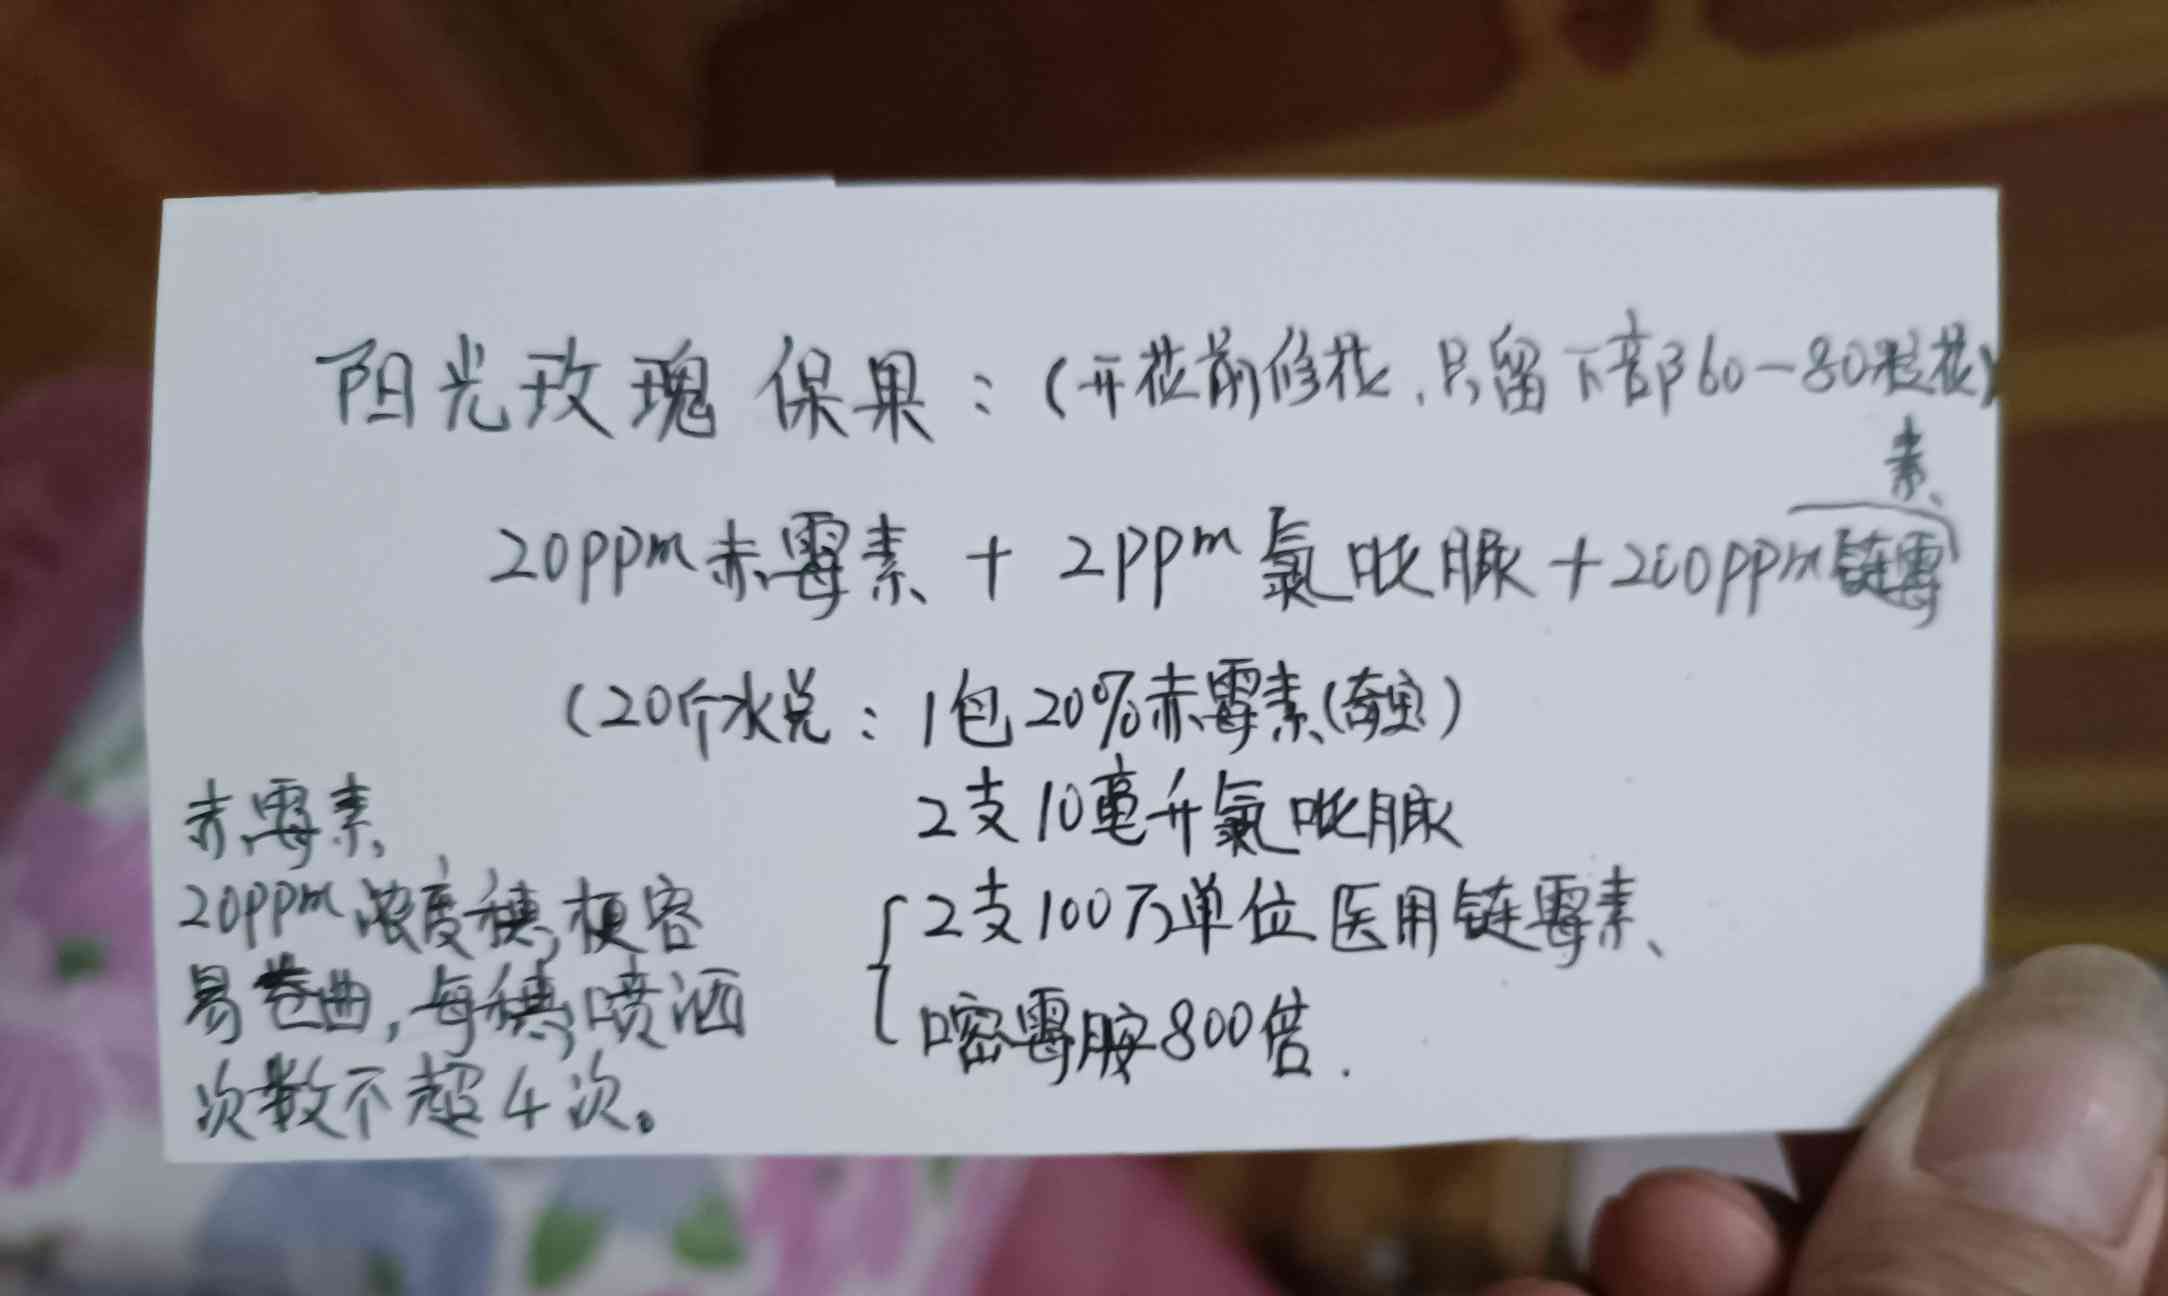 阳光玫瑰保果：（开花前修花，只留下部60-80粒花）
20ppm赤霉素 + 2ppm氯吡脲 + 200ppm链霉素
（20斤水兑：1包20%赤霉素（奇宝）
2支10毫升氯吡脲
2支100万单位医用链霉素、
嘧霉胺800倍.
赤霉素
20ppm浓度穗梗容
易卷曲，每穗喷洒
次数不超4次。